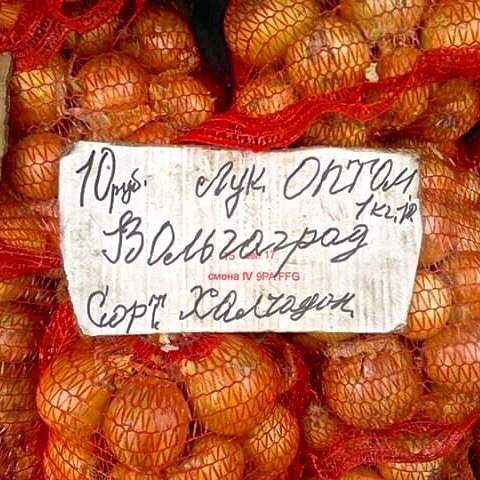 10 руб. Лук ОПТОМ
1 кг.
Волгаград
смена IV 9PA/FFG
Сорт Халчодон